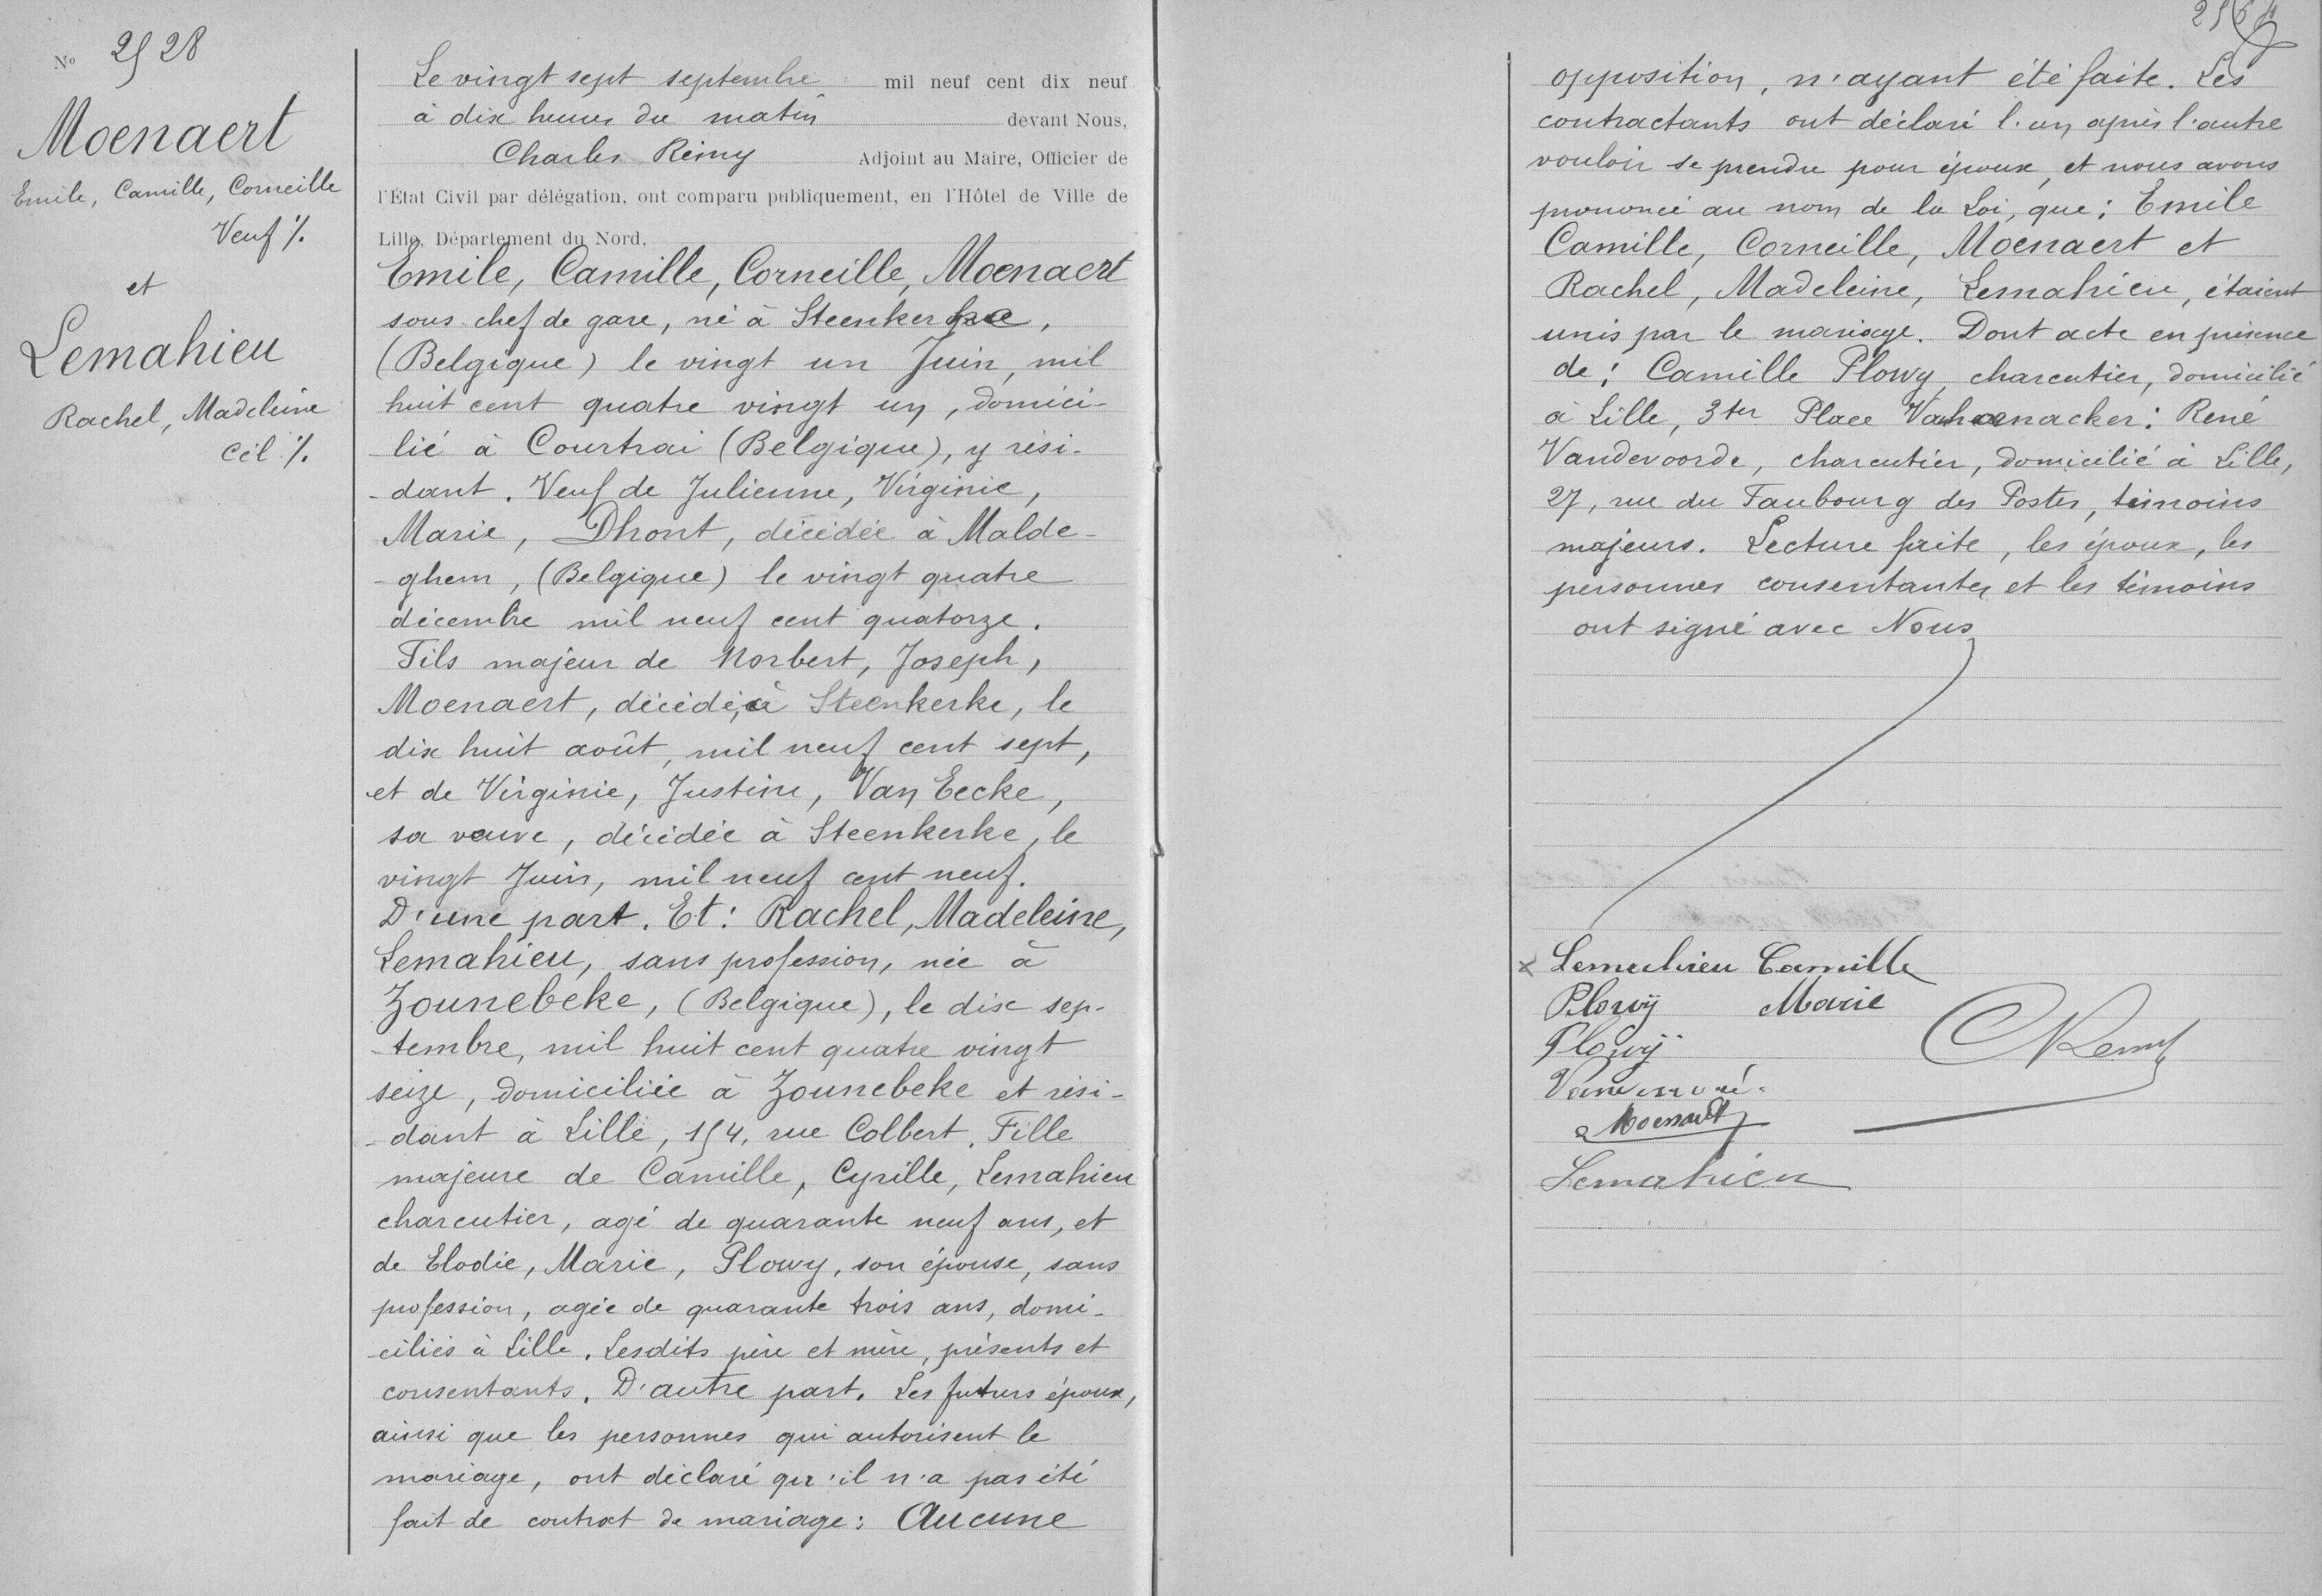 N° 2528
Moenaert
Emile, Camille, Corneille
Veuf %.
et
Lemahieu
Rachel, Madeleine
Cél %.
Le vingt sept septembre mil neuf cent dix neuf
à dix heures du matin devant Nous,
Charles Rémy Adjoint au Maire, Officier de
l'État Civil par délégation, ont comparu publiquement, en l'Hôtel de Ville de
Lille, Département du Nord,
Emile, Camille, Corneille, Moenaert
sous chef de gare, né à Steenkerke,
(Belgique) le vingt un Juin, mil
huit cent quatre vingt un, domici-
lié à Courtrai (Belgique), y rési-
-dant. Veuf de Julienne, Virginie,
Marie, Dhont, décédée à Malde-
-ghem, (Belgique) le vingt quatre
décembre mil neuf cent quatorze.
Fils majeur de Norbert, Joseph,
Moenaert, décédé, à Steenkerke, le
dix huit août, mil neuf cent sept,
et de Virginie, Justine, Van Eecke,
sa veuve, décédée à Steenkerke, le
vingt Juin, mil neuf cent neuf.
D'une part. Et: Rachel, Madeleine,
Lemahieu, sans profession, née à
Zounebeke, (Belgique), le dix sep-
-tembre, mil huit cent quatre vingt
seize, domiciliée à Zounebeke et rési-
-dant à Lille, 154, rue Colbert. Fille
majeure de Camille, Cyrille, Lemahieu
charcutier, agé de quarante neuf ans, et
de Elodie, Marie, Plowy, son épouse, sans
profession, agée de quarante trois ans, domi-
-ciliés à Lille. Lesdits père et mère, présents et
consentants. D'autre part. Les futurs époux,
ainsi que les personnes qui autorisent le
mariage, ont déclaré qu'il n'a pas été
fait de contrat de mariage: Aucune
opposition, n'ayant été faite. Les
contractants ont déclaré l'un après l'autre
vouloir se prendre pour époux, et nous avons
prononcé au nom de la Loi, que: Emile
Camille, Corneille, Moenaert et
Rachel, Madeleine, Lemahieu, étaient
unis par le mariage. Dont acte en présence
de: Camille Plowy, charcutier, domicilié
à Lille, 3ter Place Vanhoenacker: René
Vandevoorde, charcutier, domicilié à Lille,
27, rue du Faubourg des Postes, témoins
majeurs. Lecture faite, les époux, les
personnes consentantes et les témoins
ont signé avec Nous
x Lemahieu Camille
Plowÿ Marie
Plowÿ
CRemy
Moenaert
Lemahieu